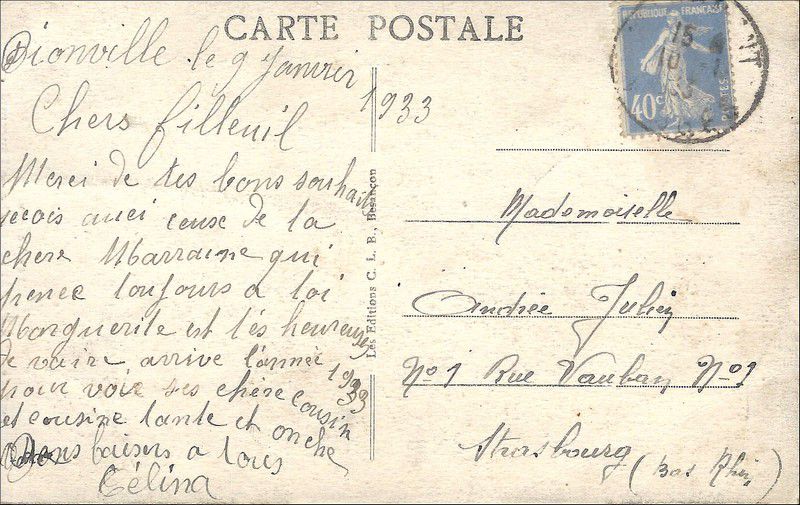 CARTE POSTALE
Dionville le 9 Janvier
1933
Chers filleuil
Merci de tes bons souhaits
recois auci ceuse de la
chere Marraine qui
pence toujours a toi
Marguerite est tés heureuse
de vaire arrive l'année 1933
pour voir ses chère cousin
et cousine tante et onche
bons baisers a tous
Célina
Les Editions C. L. B., Besançon
REPUBLIQUE FRANÇAISE
40c
POSTES
15
10
Mademoiselle
Andrée Julien
No 1 Rue Vauban No 1
Strasbourg
(Bas Rhin)